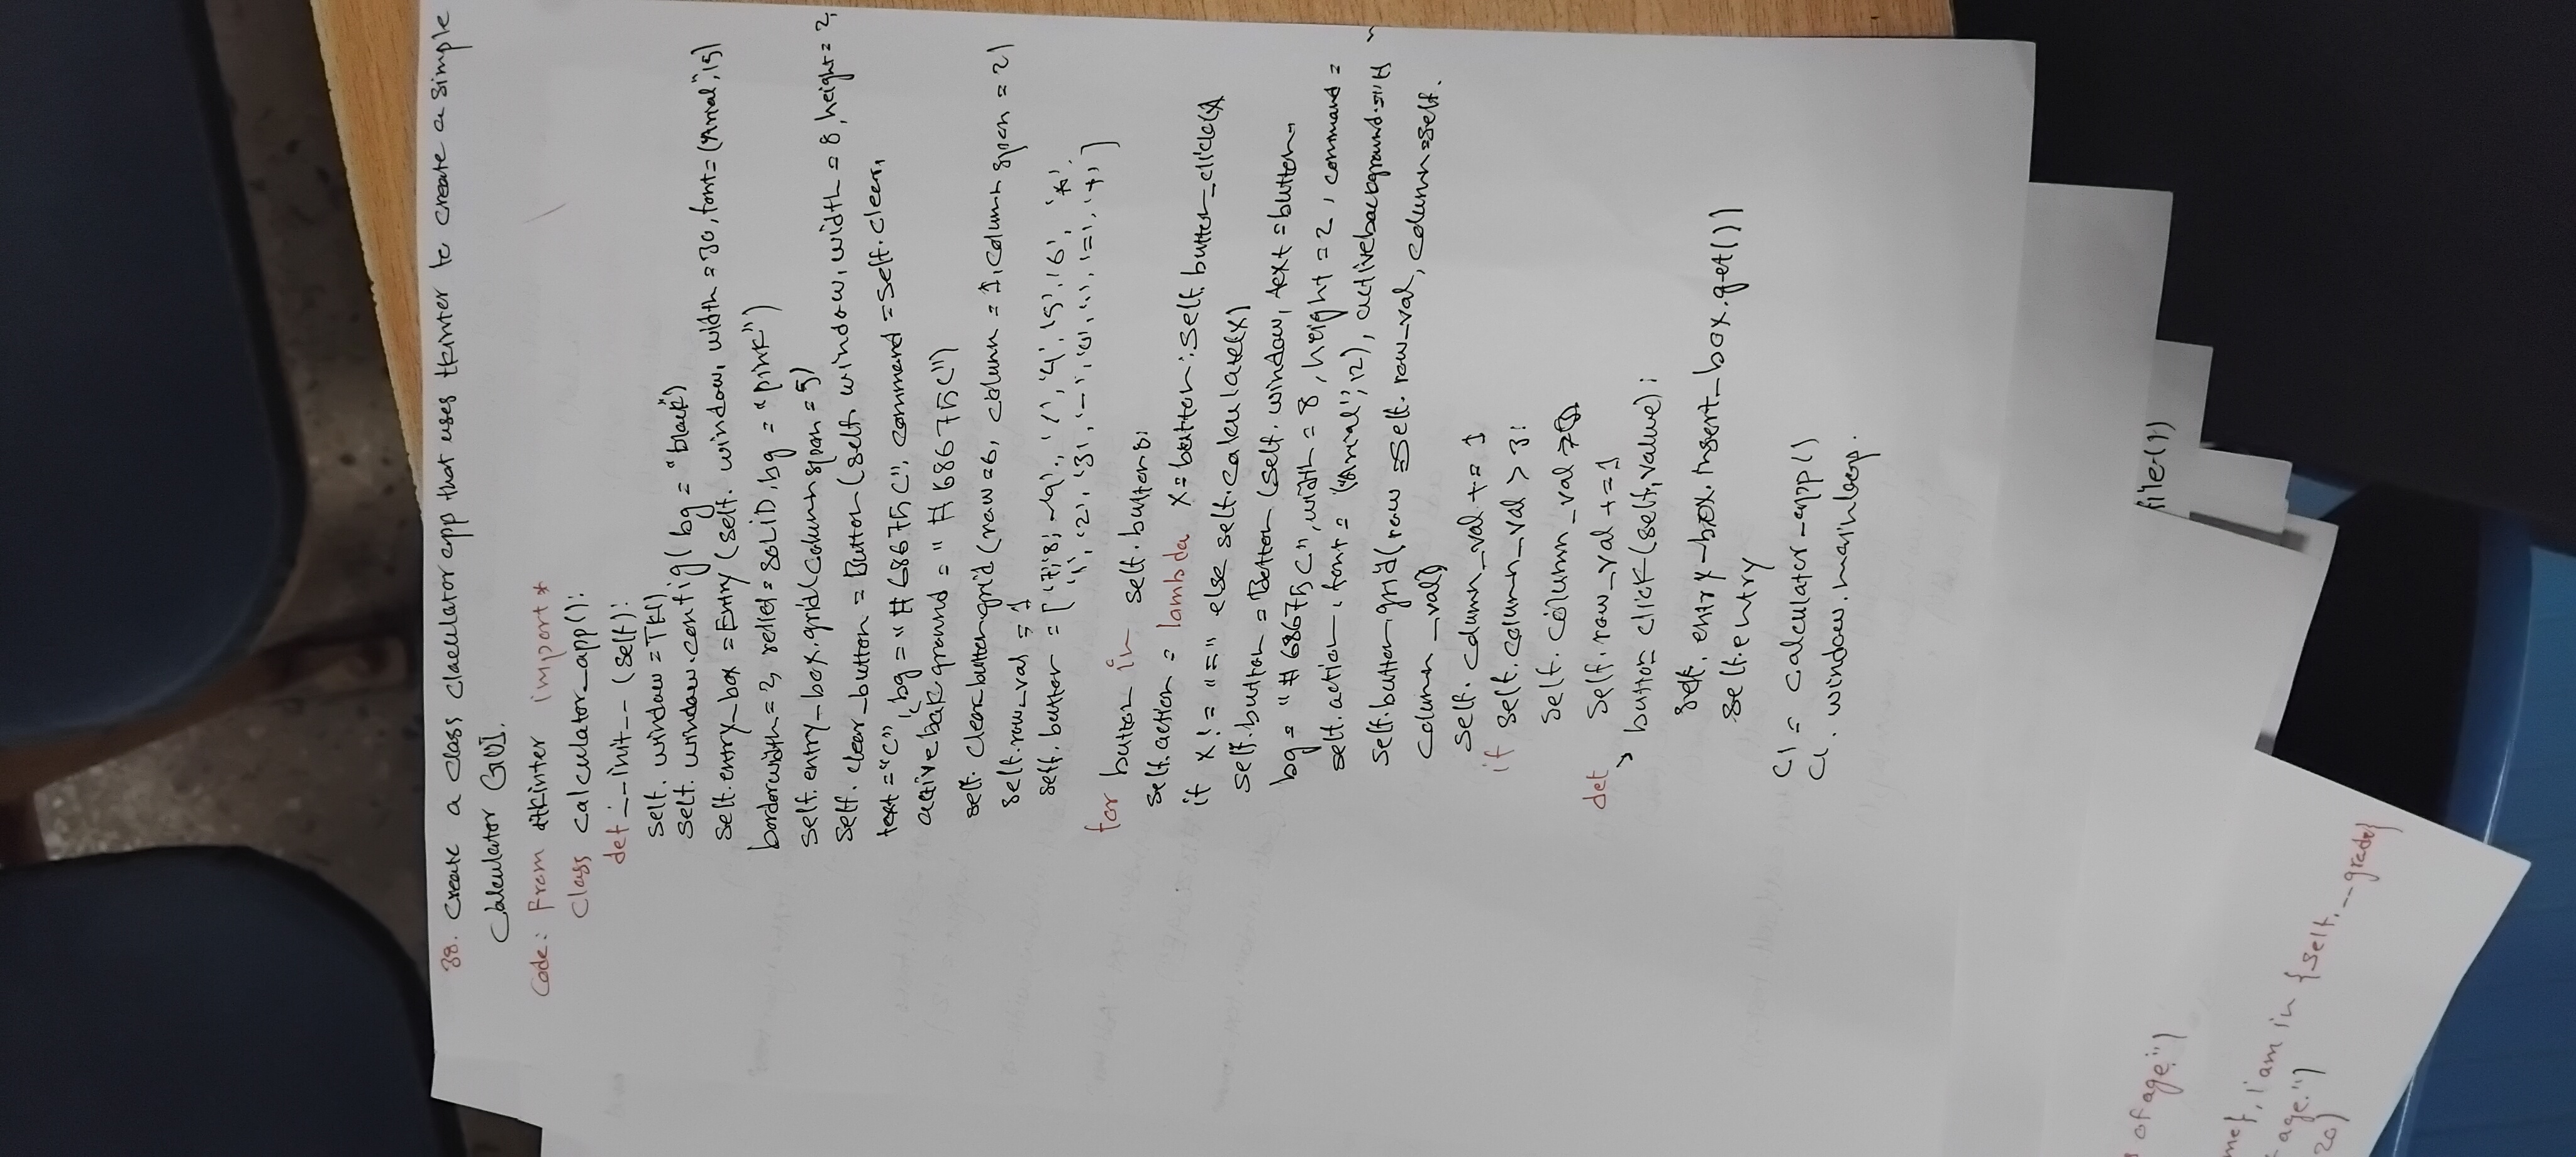 38. Create a class claculator app that uses tkinter to create a simple
Calculator GUI.
Code: From tkinter import *
class calculator_app():
def __init__ (self):
self. window = TK()
self. window.config( bg = "black")
self.entry_box = Entry (self. window, width = 30, font = ("Arial", 15)
borderwidth = 2, relief = SOLID, bg = "pink")
self. entry_box.grid(columnspan = 5)
self. clear_button = Button (self. window, width = 8, height = 2,
text = "C", bg = "#68675C", command = self.clear,
activebackground = "#68675C")
self. clear_button.grid (row = 6, column = 1, columnspan = 2)
self.row_val = 1
self. button = ['7', '8', '9', '/', '4', '5', '6', '*',
'1', '2', '3', '-', '0', '.', '=', '+']
for button in self.buttons:
self.action = lambda x = button: self.button_click(x)
if x != "=" else self.calculate(x)
self.button = Button (self. window, text = button,
bg = "#68675C", width = 8, height = 2, command =
self.action, font = ("Arial", 12), activebackground = "#
self.button.grid(row = self. row_val, column = self.
column_val)
self. column_val += 1
if self.column_val > 3:
self. column_val = 0
def self.row_val += 1
button click(self, value):
self. entry_box. insert_box.get())
self.entry
C1 = calculator_app()
C1. window.mainloop.
of age.")
file(1)
me}, I am in {self.__grade}
age.")
20)